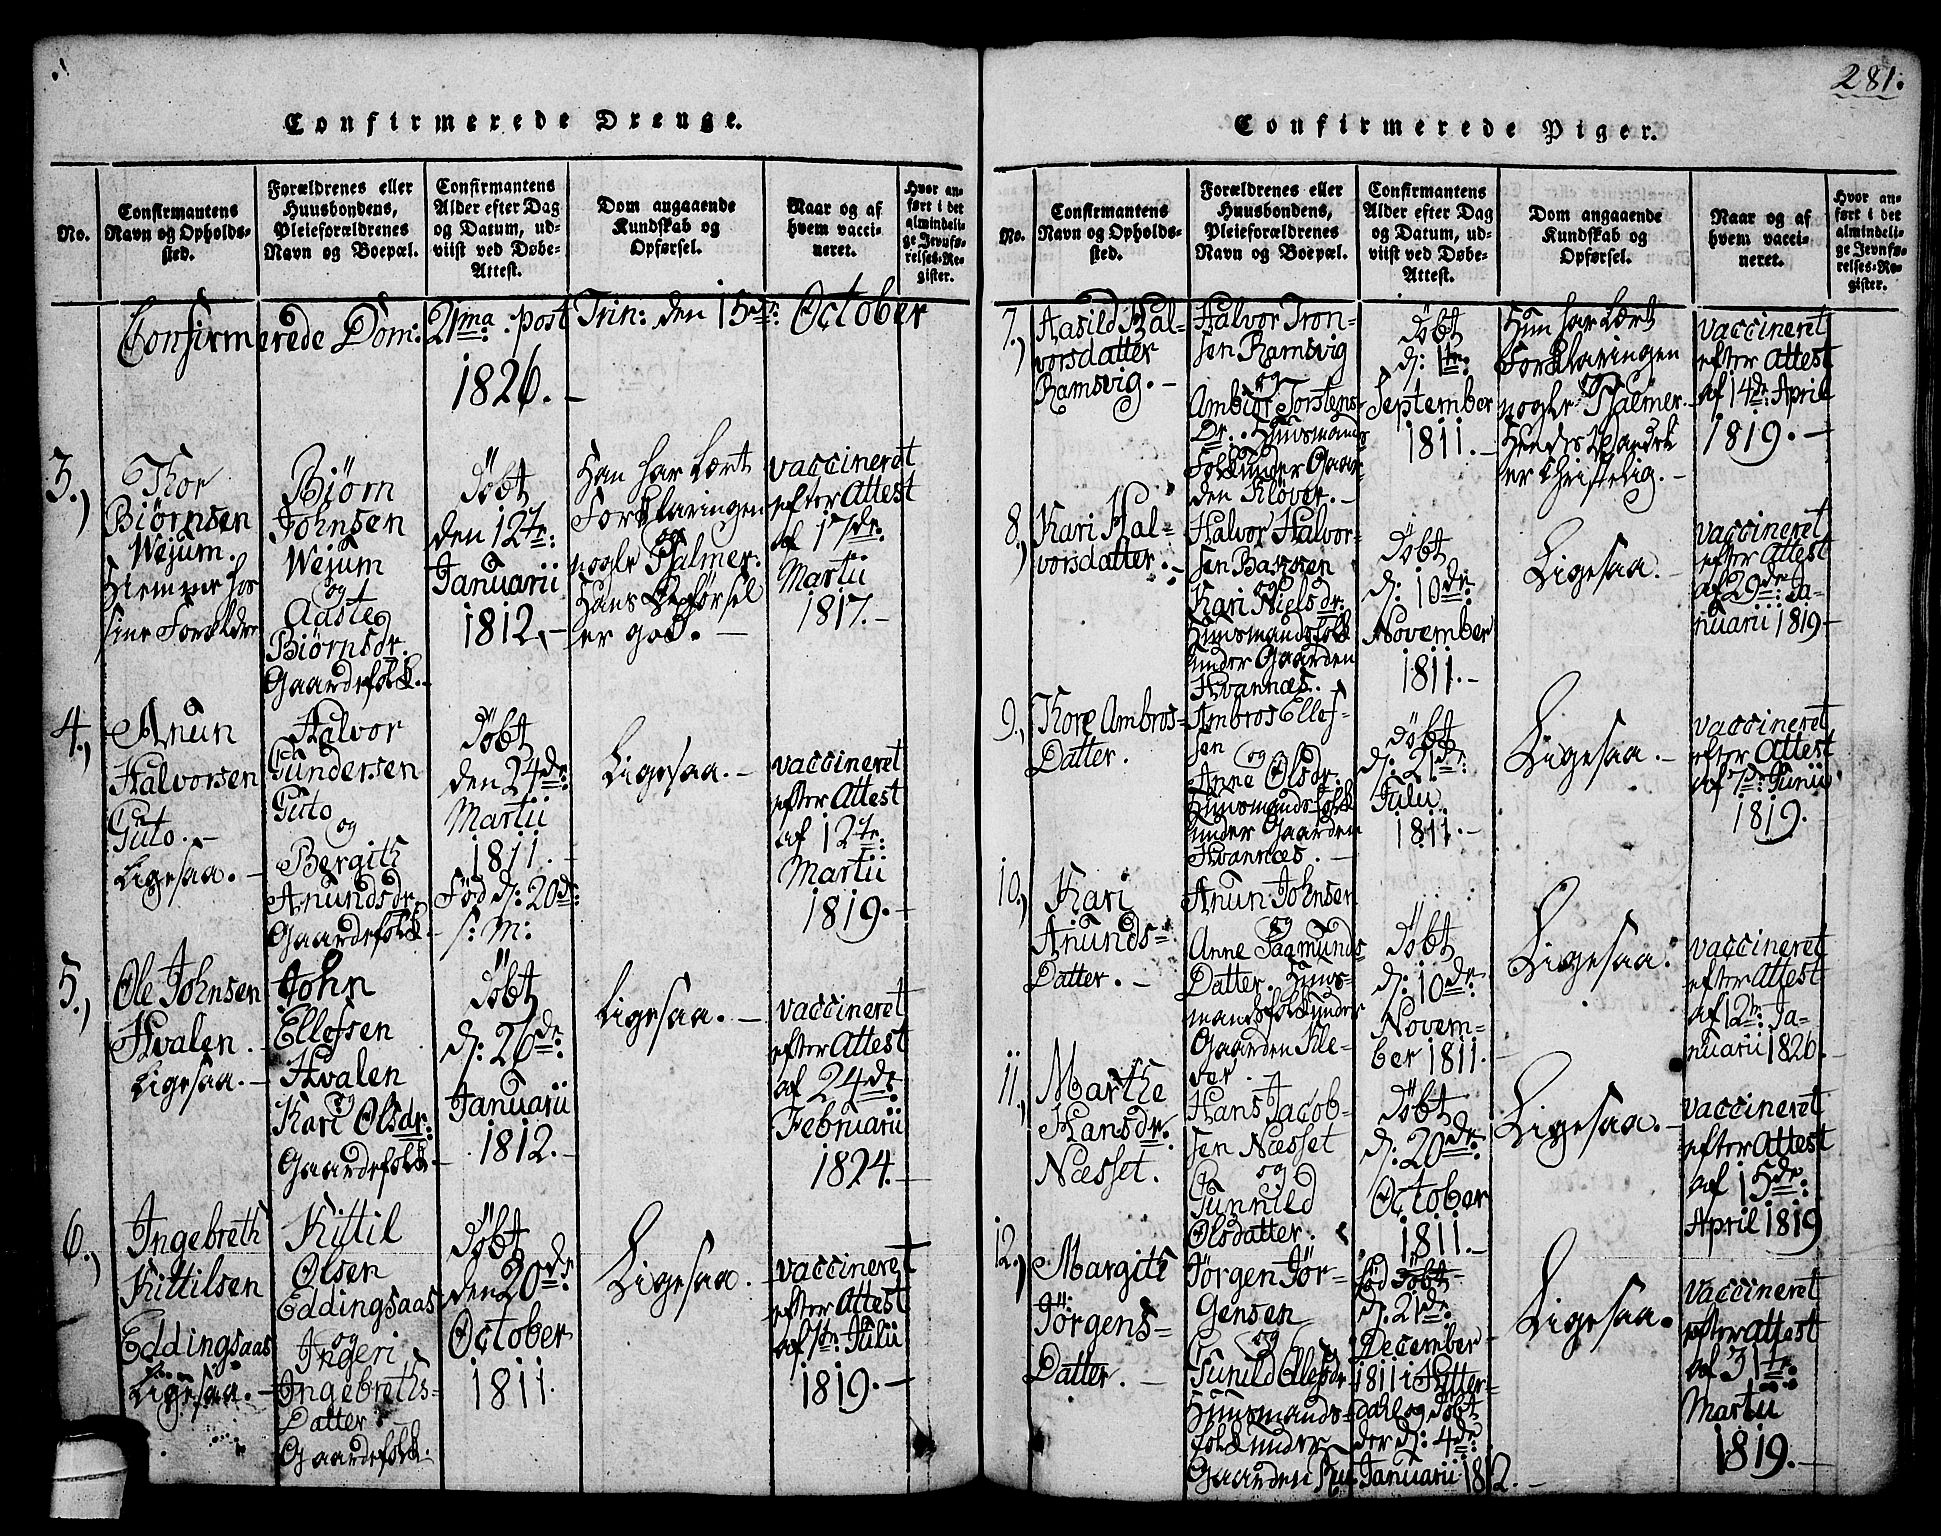 281.
Confirmerede Drenge.
No.
Confirmantens
Navn og Opholds-
sted.
Forældrenes eller
Huusbondens,
Pleieforældrenes
Navn og Boepæl.
Confirmantens
Alder efter Dag
og Datum, ud-
viist ved Døbe-
Attest.
Dom angaaende
Kundskab og
Opførsel.
Naar og af
hvem vacci-
neret.
Hvor an-
ført i det
almindeli-
ge Jevnfø-
relses-Re-
gister.
Confirmerede Dom: 21ma: post Trin: den 15de: October
1826.
3.)
Thor
Biörnsen
Wejum.
Hiemme hos
sine Forældre
Biörn
Johnsen
Wejum
og
Aaste
Biörnsdr.
Gaardefolk.
Döbt
den 12te:
Januarii
1812.
Han har lært
Forklaringen
og
nogle Psalmer.
Hans Opførsel
er god.
vaccineret
efter Attest
af 17de:
Martii
1817.
4.)
Anun
Halvorsen
Guto.
Ligesaa.
Halvor
Gundersen
Guto
og
Bergith
Anundsdr.
Gaardefolk.
Döbt
den 24de:
Martii
1811.
Fød d: 20de:
s: M:
Ligesaa.
vaccineret
efter Attest
af 12te:
Martii
1819.
5.)
Ole Johnsen
Hvalen.
Ligesaa.
John
Ellefsen
Hvalen
og
Kari Olsdr:
Gaardefolk.
Döbt
d: 26de:
Januarii
1812.
Ligesaa.
vaccineret
efter Attest
af 24de:
Februarii
1824.
6.)
Ingebreth
Kittilsen
Eddingsaas
Ligesaa.
Kittil
Olsen
Eddingsaas
og
Ingeri
Ingebreths-
Datter
Gaardefolk.
Döbt
den 20de
October
1811.
Ligesaa.
vaccineret
efter Attest
af 1te: Julii
1819.
Confirmerede Piger.
No.
Confirmantens
Navn og Opholds-
sted.
Forældrenes eller
Huusbondens,
Pleieforældrenes
Navn og Boepæl.
Confirmantens
Alder efter Dag
og Datum, ud-
viist ved Døbe-
Attest.
Dom angaaende
Kundskab og
Opførsel.
Naar og af
hvem vacci-
neret.
Hvor an-
ført i det
almindeli-
ge Jevnfø-
relses-Re-
gister.
7.)
Aasild Hal-
vorsdatter
Ramsvig.
Halvor Tron-
sen Ramsvig
og
Ambiör Torstens-
Dr. Huusmands
Folk under Gaar-
den Klöver.
Döbt
d: 1te:
September
1811.
Hun har lært
Forklaringen
og
nogle Psalmer.
Hendes Vandel
er christelig.
vaccineret
efter Attest
af 14de: April
1819.
8.)
Kari Hal-
vorsdatter.
Halvor Halvor-
sen Bassen
og
Kari Nielsdr:
Huusmandsfolk
under Gaarden
Hvannæs.
Döbt
d: 10de:
November
1811.
Ligesaa.
vaccineret
efter Attest
af 29de: Ja-
nuarii 1819
9.)
Thore Ambros-
Datter.
Ambros Ellef-
sen
og
Anne Olsdr.
Huusmandsfolk
under Gaarden
Hvannæs.
Döbt
d: 21de:
Julii
1811.
Ligesaa.
vaccineret
efter Attest
af 7de: Junii
1819.
10.)
Kari
Anunds-
Datter.
Anun Johnsen
og
Anne Saamunds-
Datter. Huus-
mandsfolk under
Gaarden Kle-
ver.
Döbt
d: 10de:
Novem-
ber 1811.
Ligesaa.
vaccineret
efter Attest
af 12te: Ja-
nuarii 1826.
11.)
Marthe
Hansdr.
Næsset.
Hans Jacob-
sen Næsset
og
Gunnild
Olsdatter.
Döbt
d: 20de:
October
1811.
Ligesaa.
vaccineret
efter Attest
af 15de:
April 1819
12.)
Margith
Jörgens-
Datter.
Jörgen Jör-
gensen
og
Gunild Ellefsdr.
Huusmands-
folk under
Gaarden
Fød Döbt
d: 21de:
December
1811 i Hitter-
dahl og döbt
der d: 4de:
Januarii 1812.
Ligesaa.
vaccineret
efter Attest
af 31te:
Martii
1819.